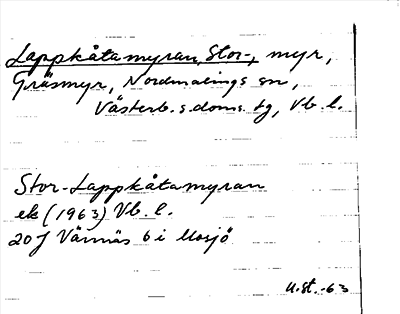 Lappkåtamyran, Stor-, myr,
Gräsmyr, Nordmalings sn,
Västerb. s. doms. tg, Vb. l.
Stor-Lappkåtamyran
ek (1963) Vb. l.
20J Vännäs 6 i Mosjö
u.st. -63